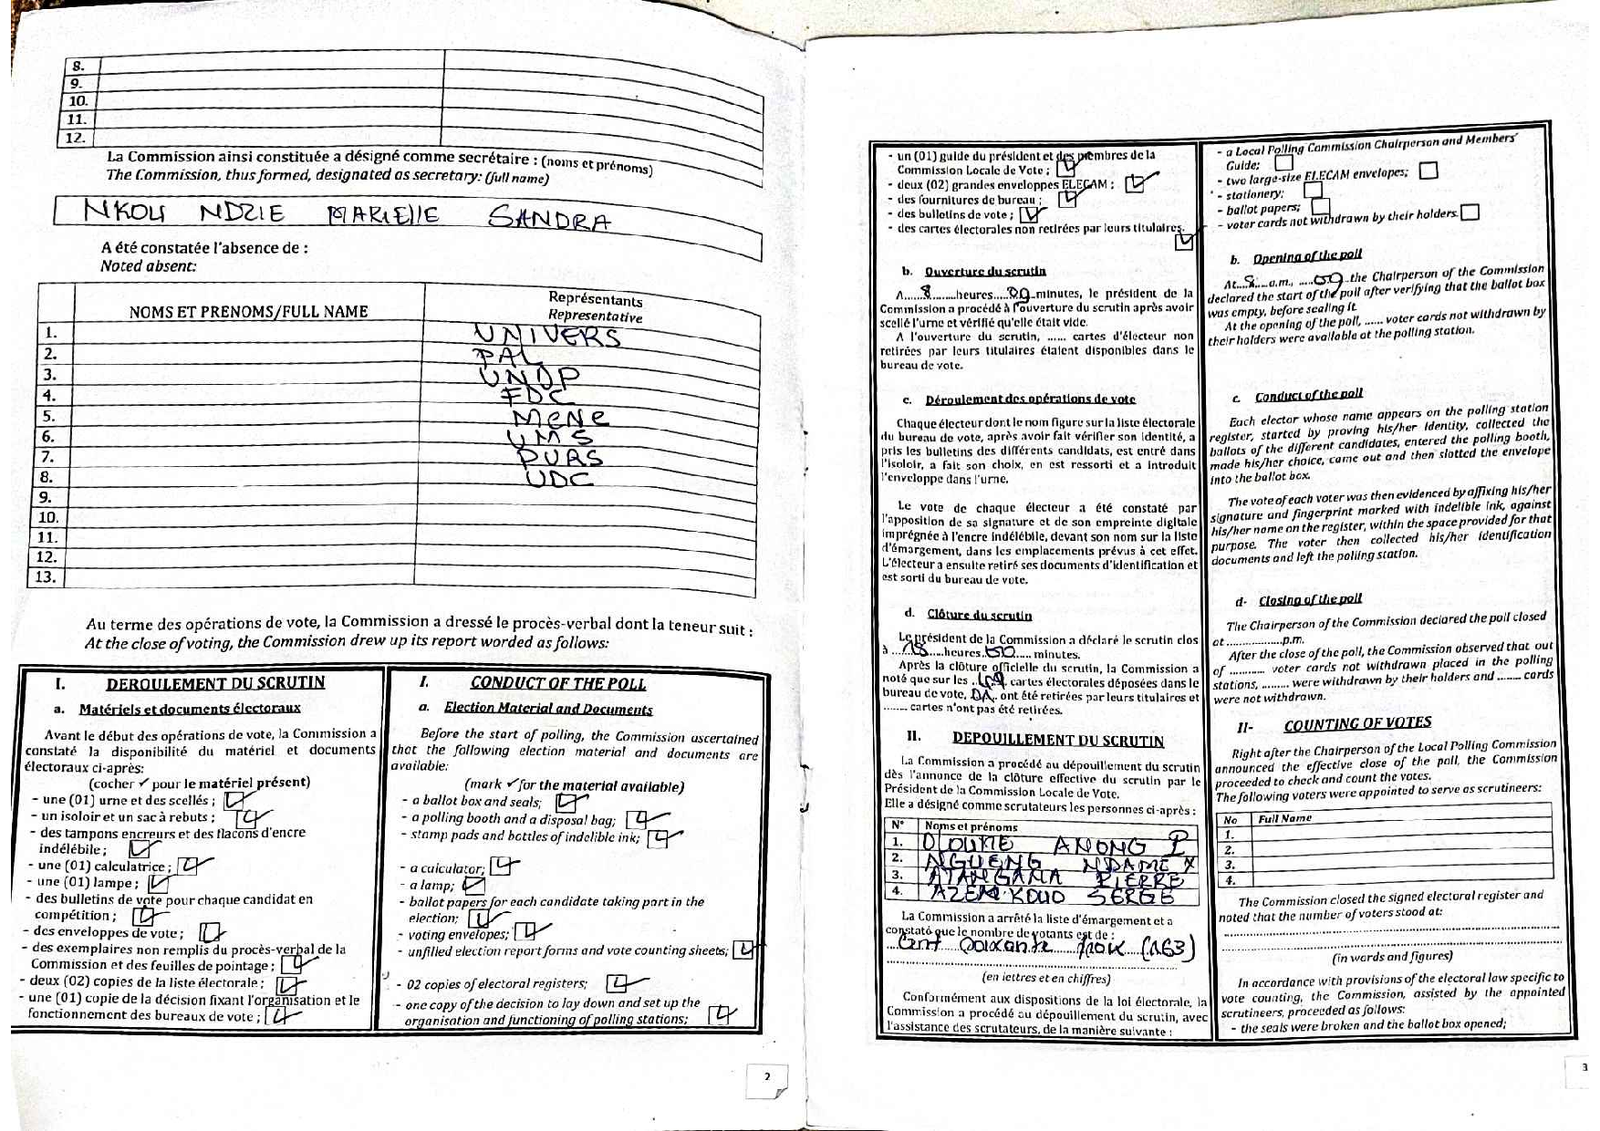 8.
9.
10.
11.
12.
La Commission ainsi constituée a désigné comme secrétaire : (noms et prénoms)
The Commission, thus formed, designated as secretary: (full name)
NKOU NDZIE MARIELLE SANDRA
A été constatée l'absence de :
Noted absent:
NOMS ET PRENOMS/FULL NAME
Représentants
Representative
1. UNIVERS
2. PAL
3. UNDP
4. FDC
5. MCNC
6. UMS
7. PURS
8. UDC
9.
10.
11.
12.
13.
Au terme des opérations de vote, la Commission a dressé le procès-verbal dont la teneur suit :
At the close of voting, the Commission drew up its report worded as follows:
I. DEROULEMENT DU SCRUTIN
a. Matériels et documents électoraux
Avant le début des opérations de vote, la Commission a
constaté la disponibilité du matériel et documents
électoraux ci-après:
(cocher ✓ pour le matériel présent)
- une (01) urne et des scellés ;
- un isoloir et un sac à rebuts ;
- des tampons encreurs et des flacons d'encre
indélébile ;
- une (01) calculatrice ;
- une (01) lampe ;
- des bulletins de vote pour chaque candidat en
compétition ;
- des enveloppes de vote ;
- des exemplaires non remplis du procès-verbal de la
Commission et des feuilles de pointage ;
- deux (02) copies de la liste électorale ;
- une (01) copie de la décision fixant l'organisation et le
fonctionnement des bureaux de vote ;
I. CONDUCT OF THE POLL
a. Election Material and Documents
Before the start of polling, the Commission ascertained
that the following election material and documents are
available:
(mark ✓ for the material available)
- a ballot box and seals;
- a polling booth and a disposal bag;
- stamp pads and bottles of indelible ink;
- a calculator;
- a lamp;
- ballot papers for each candidate taking part in the
election;
- voting envelopes;
- unfilled election report forms and vote counting sheets;
- 02 copies of electoral registers;
- one copy of the decision to lay down and set up the
organisation and functioning of polling stations;
2
- un (01) guide du président et des membres de la
Commission Locale de Vote ;
- deux (02) grandes enveloppes ELECAM ;
- des fournitures de bureau ;
- des bulletins de vote ;
- des cartes électorales non retirées par leurs titulaires.
b. Ouverture du scrutin
A....8....heures....09..minutes, le président de la
Commission a procédé à l'ouverture du scrutin après avoir
scellé l'urne et vérifié qu'elle était vide.
A l'ouverture du scrutin, ...... cartes d'électeur non
retirées par leurs titulaires étaient disponibles dans le
bureau de vote.
c. Déroulement des opérations de vote
Chaque électeur dont le nom figure sur la liste électorale
du bureau de vote, après avoir fait vérifier son identité, a
pris les bulletins des différents candidats, est entré dans
l'isoloir, a fait son choix, en est ressorti et a introduit
l'enveloppe dans l'urne.
Le vote de chaque électeur a été constaté par
l'apposition de sa signature et de son empreinte digitale
imprégnée à l'encre indélébile, devant son nom sur la liste
d'émargement, dans les emplacements prévus à cet effet.
L'électeur a ensuite retiré ses documents d'identification et
est sorti du bureau de vote.
d. Clôture du scrutin
Le président de la Commission a déclaré le scrutin clos
à ..18..heures..00.... minutes.
Après la clôture officielle du scrutin, la Commission a
noté que sur les ...... cartes électorales déposées dans le
bureau de vote, ...... ont été retirées par leurs titulaires et
........ cartes n'ont pas été retirées.
II. DEPOUILLEMENT DU SCRUTIN
La Commission a procédé au dépouillement du scrutin
dès l'annonce de la clôture effective du scrutin par le
Président de la Commission Locale de Vote.
Elle a désigné comme scrutateurs les personnes ci-après :
N° Noms et prénoms
1. ANONG P
2. NGUENG NDAME X
3. ATANGANA PIERRE
4. SERGE
La Commission a arrêté la liste d'émargement et a
constaté que le nombre de votants est de :
Cent Soixante trois (163)
(en lettres et en chiffres)
Conformément aux dispositions de la loi électorale, la
Commission a procédé au dépouillement du scrutin, avec
l'assistance des scrutateurs, de la manière suivante :
- a Local Polling Commission Chairperson and Members'
Guide;
- two large-size ELECAM envelopes;
- stationery;
- ballot papers;
- voter cards not withdrawn by their holders.
b. Opening of the poll
At...8....a.m., ....09..the Chairperson of the Commission
declared the start of the poll after verifying that the ballot box
was empty, before sealing it.
At the opening of the poll, ...... voter cards not withdrawn by
their holders were available at the polling station.
c. Conduct of the poll
Each elector whose name appears on the polling station
register, started by proving his/her identity, collected the
ballots of the different candidates, entered the polling booth,
made his/her choice, came out and then slotted the envelope
into the ballot box.
The vote of each voter was then evidenced by affixing his/her
signature and fingerprint marked with indelible ink, against
his/her name on the register, within the space provided for that
purpose. The voter then collected his/her identification
documents and left the polling station.
d- Closing of the poll
The Chairperson of the Commission declared the poll closed
at .................p.m.
After the close of the poll, the Commission observed that out
of ........... voter cards not withdrawn placed in the polling
stations, ......... were withdrawn by their holders and ........ cards
were not withdrawn.
II- COUNTING OF VOTES
Right after the Chairperson of the Local Polling Commission
announced the effective close of the poll, the Commission
proceeded to check and count the votes.
The following voters were appointed to serve as scrutineers:
No Full Name
1.
2.
3.
4.
The Commission closed the signed electoral register and
noted that the number of voters stood at:
(in words and figures)
In accordance with provisions of the electoral law specific to
vote counting, the Commission, assisted by the appointed
scrutineers, proceeded as follows:
- the seals were broken and the ballot box opened;
3